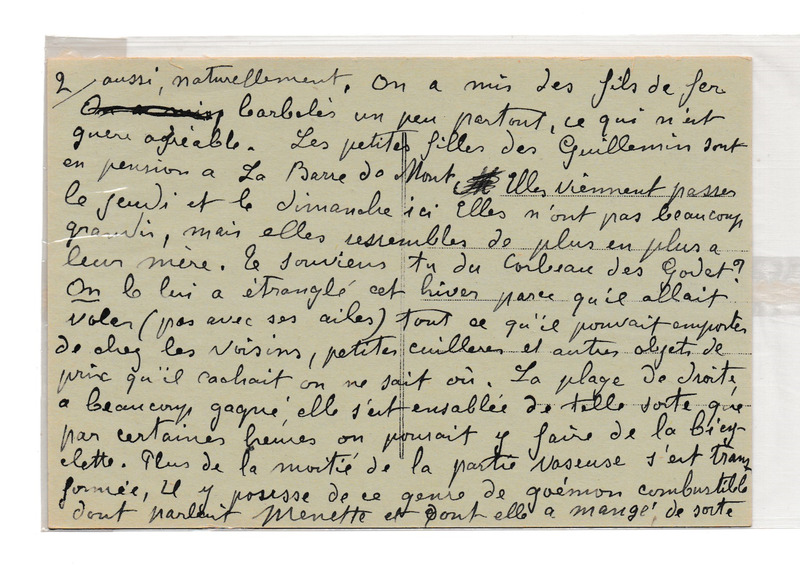 2/ aussi, naturellement. On a mis des fils de fer
On a mis barbelés un peu partout, ce qui n'est
guère agréable. Les petites filles des Guillemin sont
en pension a La Barre de Mont. Elles viennent passer
le jeudi et le dimanche ici Elles n'ont pas beaucoup
grandis, mais elles ressembles de plus en plus a
leur mère. Te souviens tu du Corbeau des Godet?
On le lui a étranglé cet hiver parce qu'il allait
voler (pas avec ses ailes) tout ce qu'il pouvait emporter
de chez les voisins, petites cuilleres et autres objets de
prix qu'il cachait on ne sait où. La plage de droite
a beaucoup gagné elle s'est ensablée de telle sorte que
par certaines heures on pourrait y faire de la bicy-
clette. Plus de la moitié de la partie vaseuse s'est trans
formée, Il y pousse de ce genre de goémon combustible
dont parlait Menette et dont elle a mangé de sorte